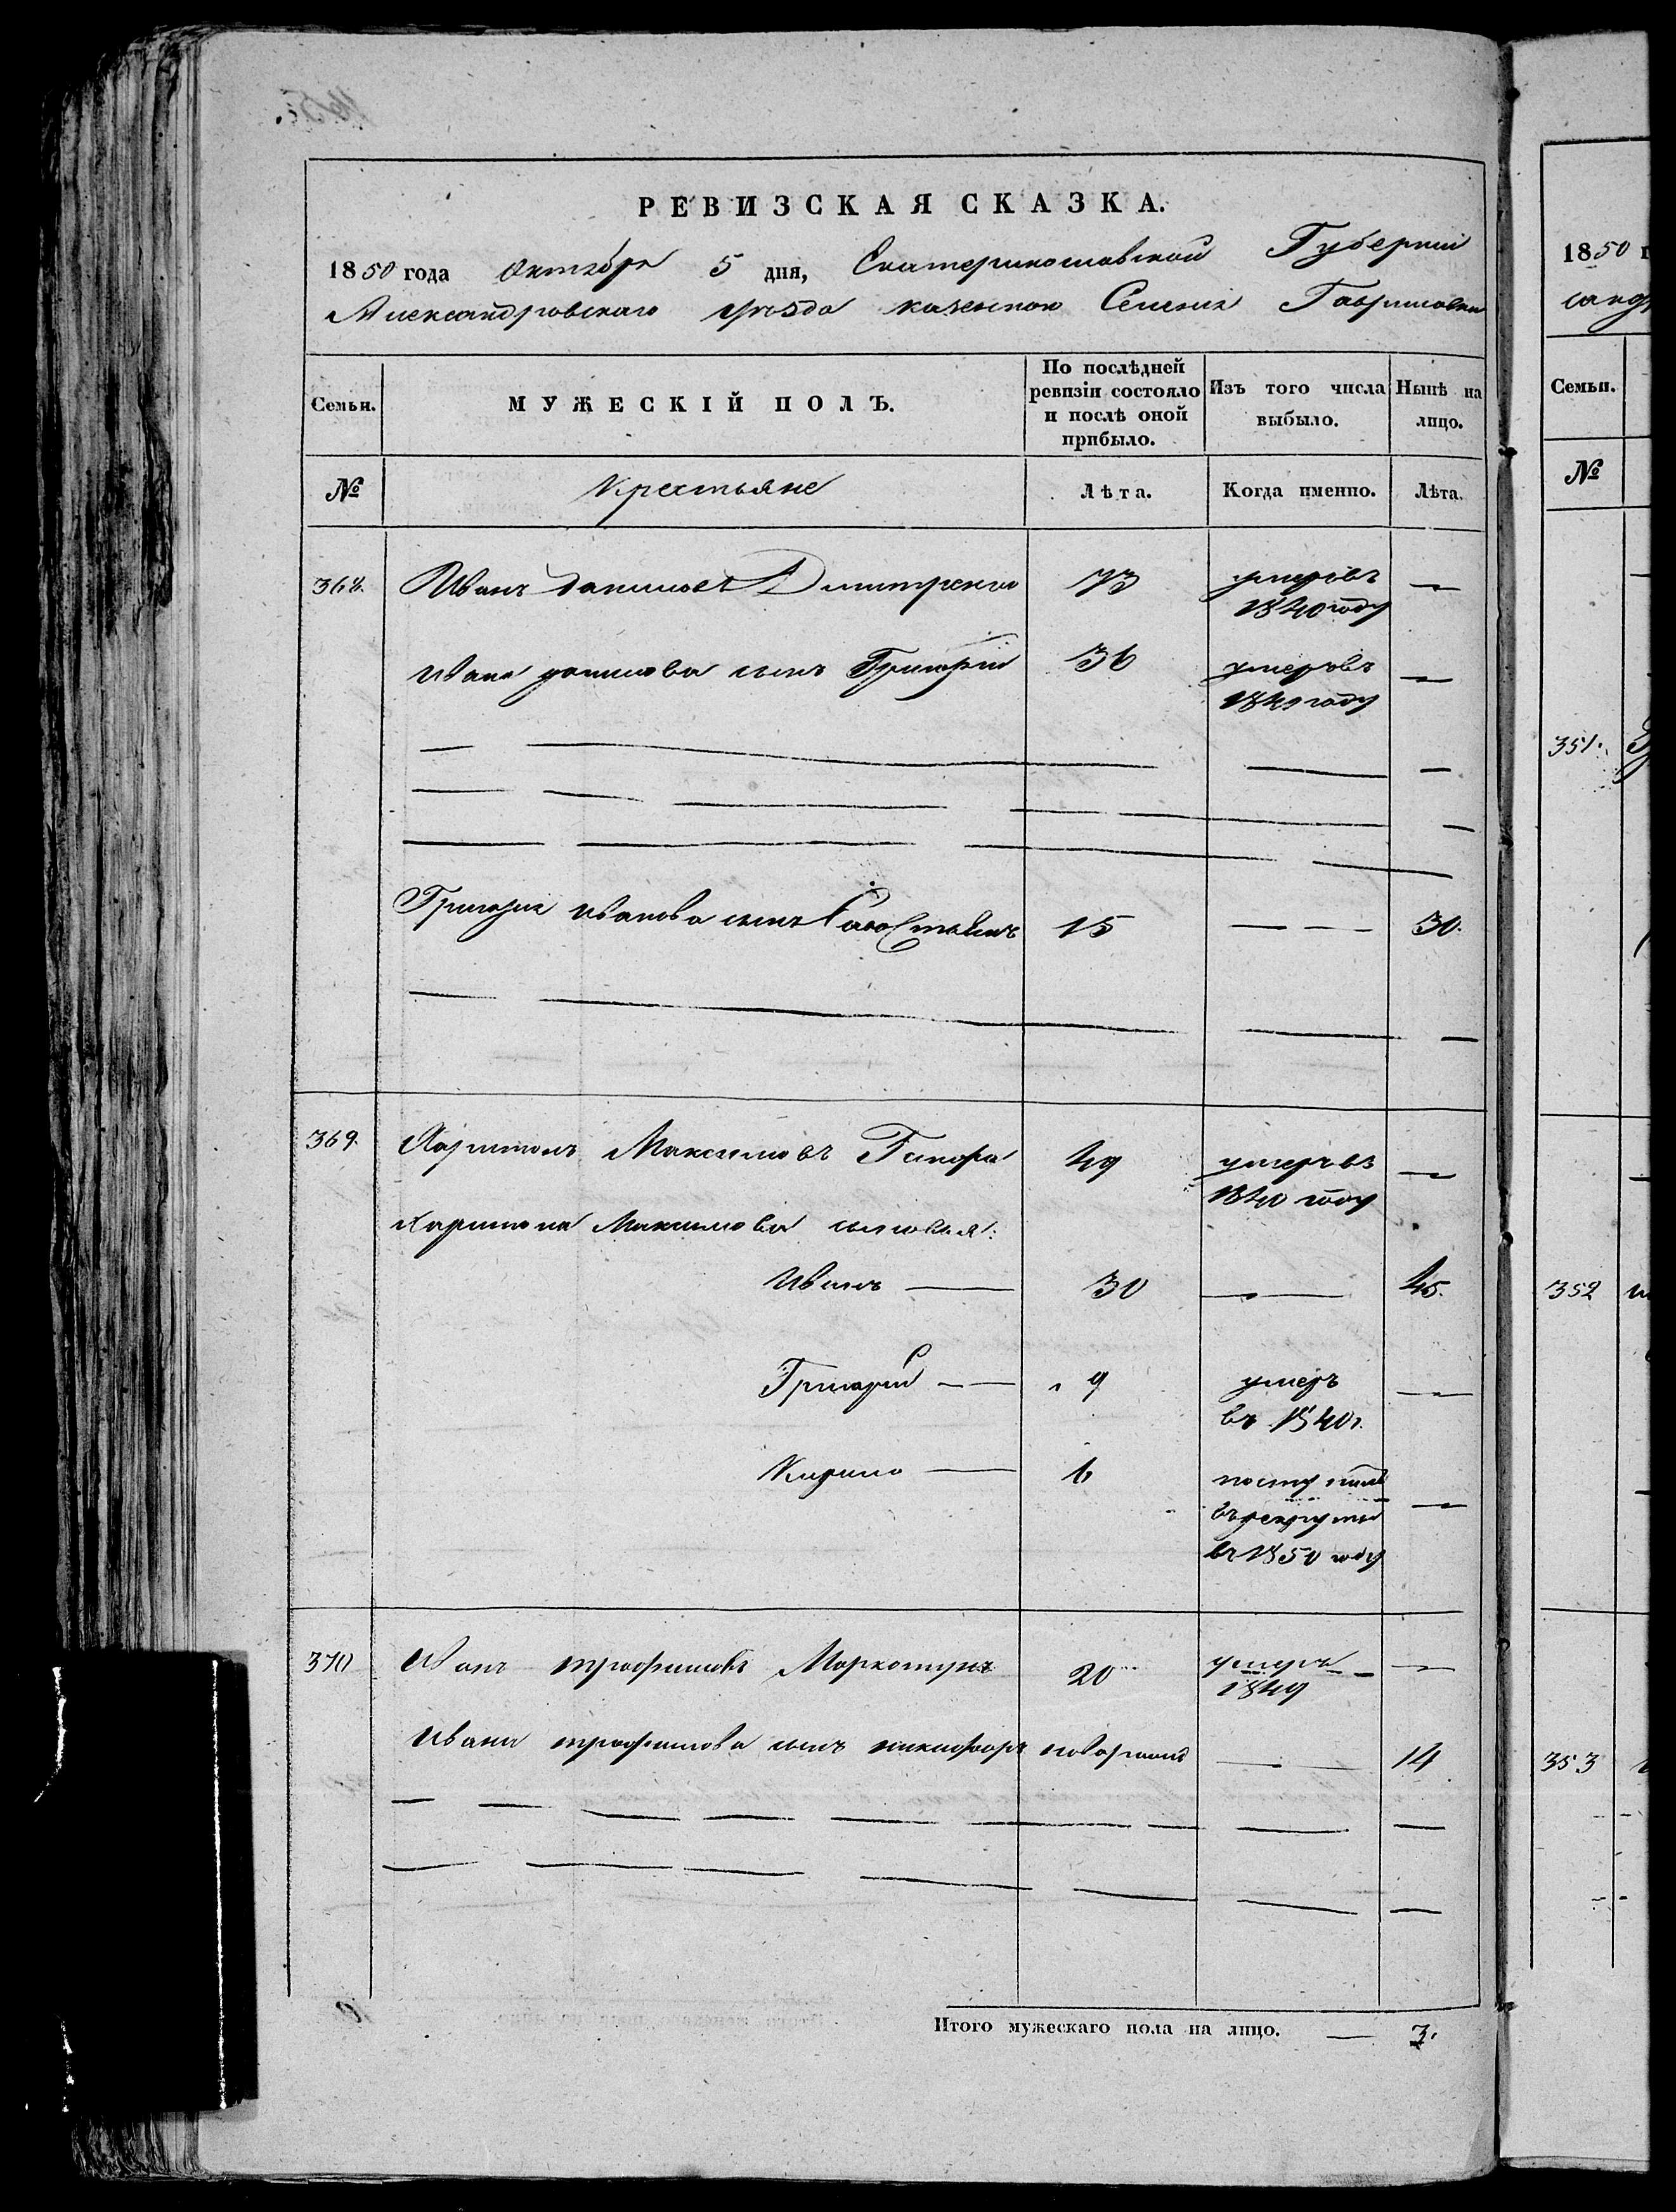 РЕВИЗСКАЯ СКАЗКА.
1850 года Октября 5 дня, Екатеринославской Губерніи
Александровскаго уѣзда казеннаго Селенія Гавриловки
Семьи.
МУЖЕСКІЙ ПОЛЪ.
По послѣдней ревизіи состояло и послѣ оной прибыло.
Изъ того числа выбыло.
Нынѣ на лицо.
№ Крестьяне Лѣта. Когда именно. Лѣта.
368. Иванъ Даниловъ Дмитренко 73 умеръ въ —
1840 году
Ивана Данилова сынъ Григорій 36 умеръ въ —
году
Григорія Иванова сынъ 15 — — 30.
369. Харитонъ Максимовъ 49 умеръ въ —
1840 году
Харитона Максимова сыновья:
Иванъ — 30 — 45.
Григорій — 9 умеръ —
въ 1840 г.
Кирило — 6 поступилъ —
въ рекруты
въ 1850 году
370 Иванъ Трофимовъ 20 умеръ —
1849
Ивана Трофимова сынъ Никифоръ новорож — 14
Итого мужескаго пола на лицо. — 3.
1850 г
Семьи.
№
351.
352
353